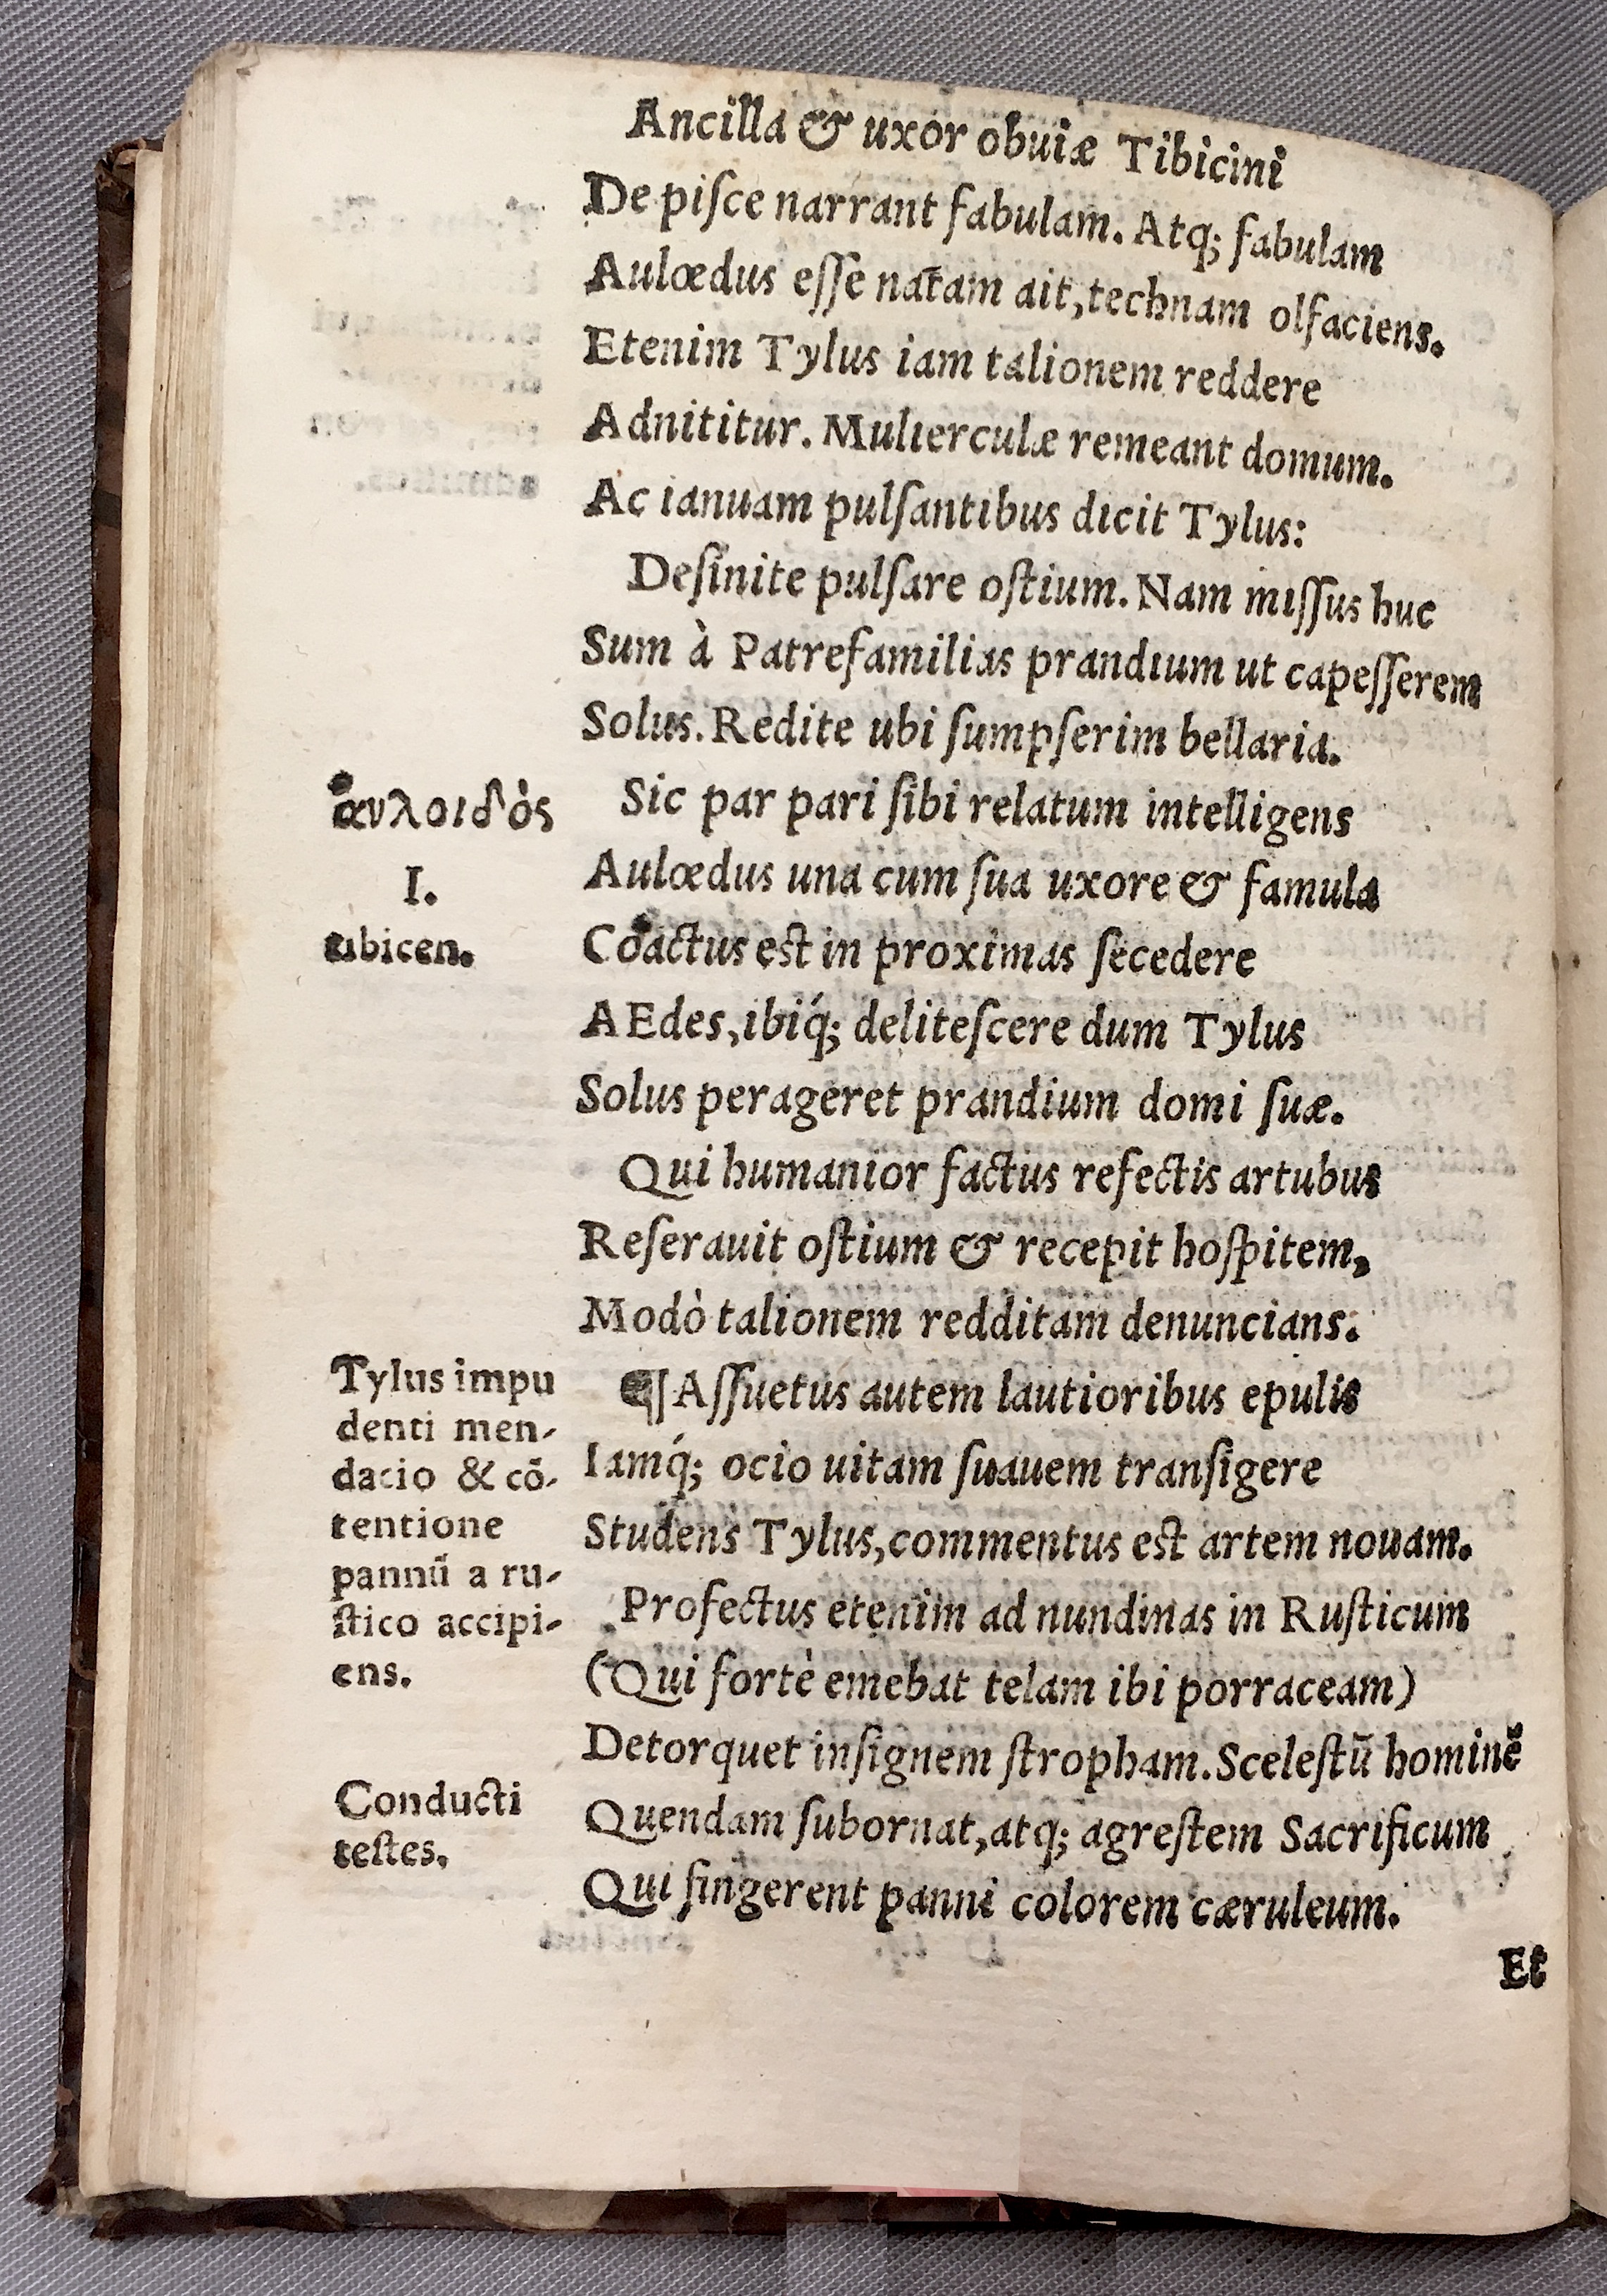 Ancilla & uxor obuiæ Tibicini
De piſce narrant fabulam. Atq; fabulam
Aulœdus eſſe natam ait, technam olfaciens.
Etenim Tylus iam talionem reddere
Adnititur. Mulierculæ remeant domum.
Ac ianuam pulſantibus dicit Tylus:
Deſinite pulſare oſtium. Nam miſſus huc
Sum à Patrefamilias prandium ut capeſſerem
Solus. Redite ubi ſumpſerim bellaria.
Sic par pari ſibi relatum intelligens
Aulœdus una cum ſua uxore & famula
Coactus eſt in proximas ſecedere
AEdes, ibiq́; deliteſcere dum Tylus
Solus perageret prandium domi ſuæ.
Qui humanior factus refectis artubus
Reſerauit oſtium & recepit hoſpitem,
Modò talionem redditam denuncians.
¶ Aſſuetus autem lautioribus epulis
Iamq́; ocio uitam ſuauem tranſigere
Studens Tylus, commentus eſt artem nouam.
Profectus etenim ad nundinas in Ruſticum
(Qui fortè emebat telam ibi porraceam)
Detorquet inſignem ſtropham. Sceleſtū hominē
Quendam ſubornat, atq; agreſtem Sacrificum
Qui fingerent panni colorem cæruleum.
Et
ἀυλοιδὸς
I.
tibicen.
Tylus impu
denti men-
dacio & cō-
tentione
pannū a ru-
ſtico accipi-
ens.
Conducti
teſtes.